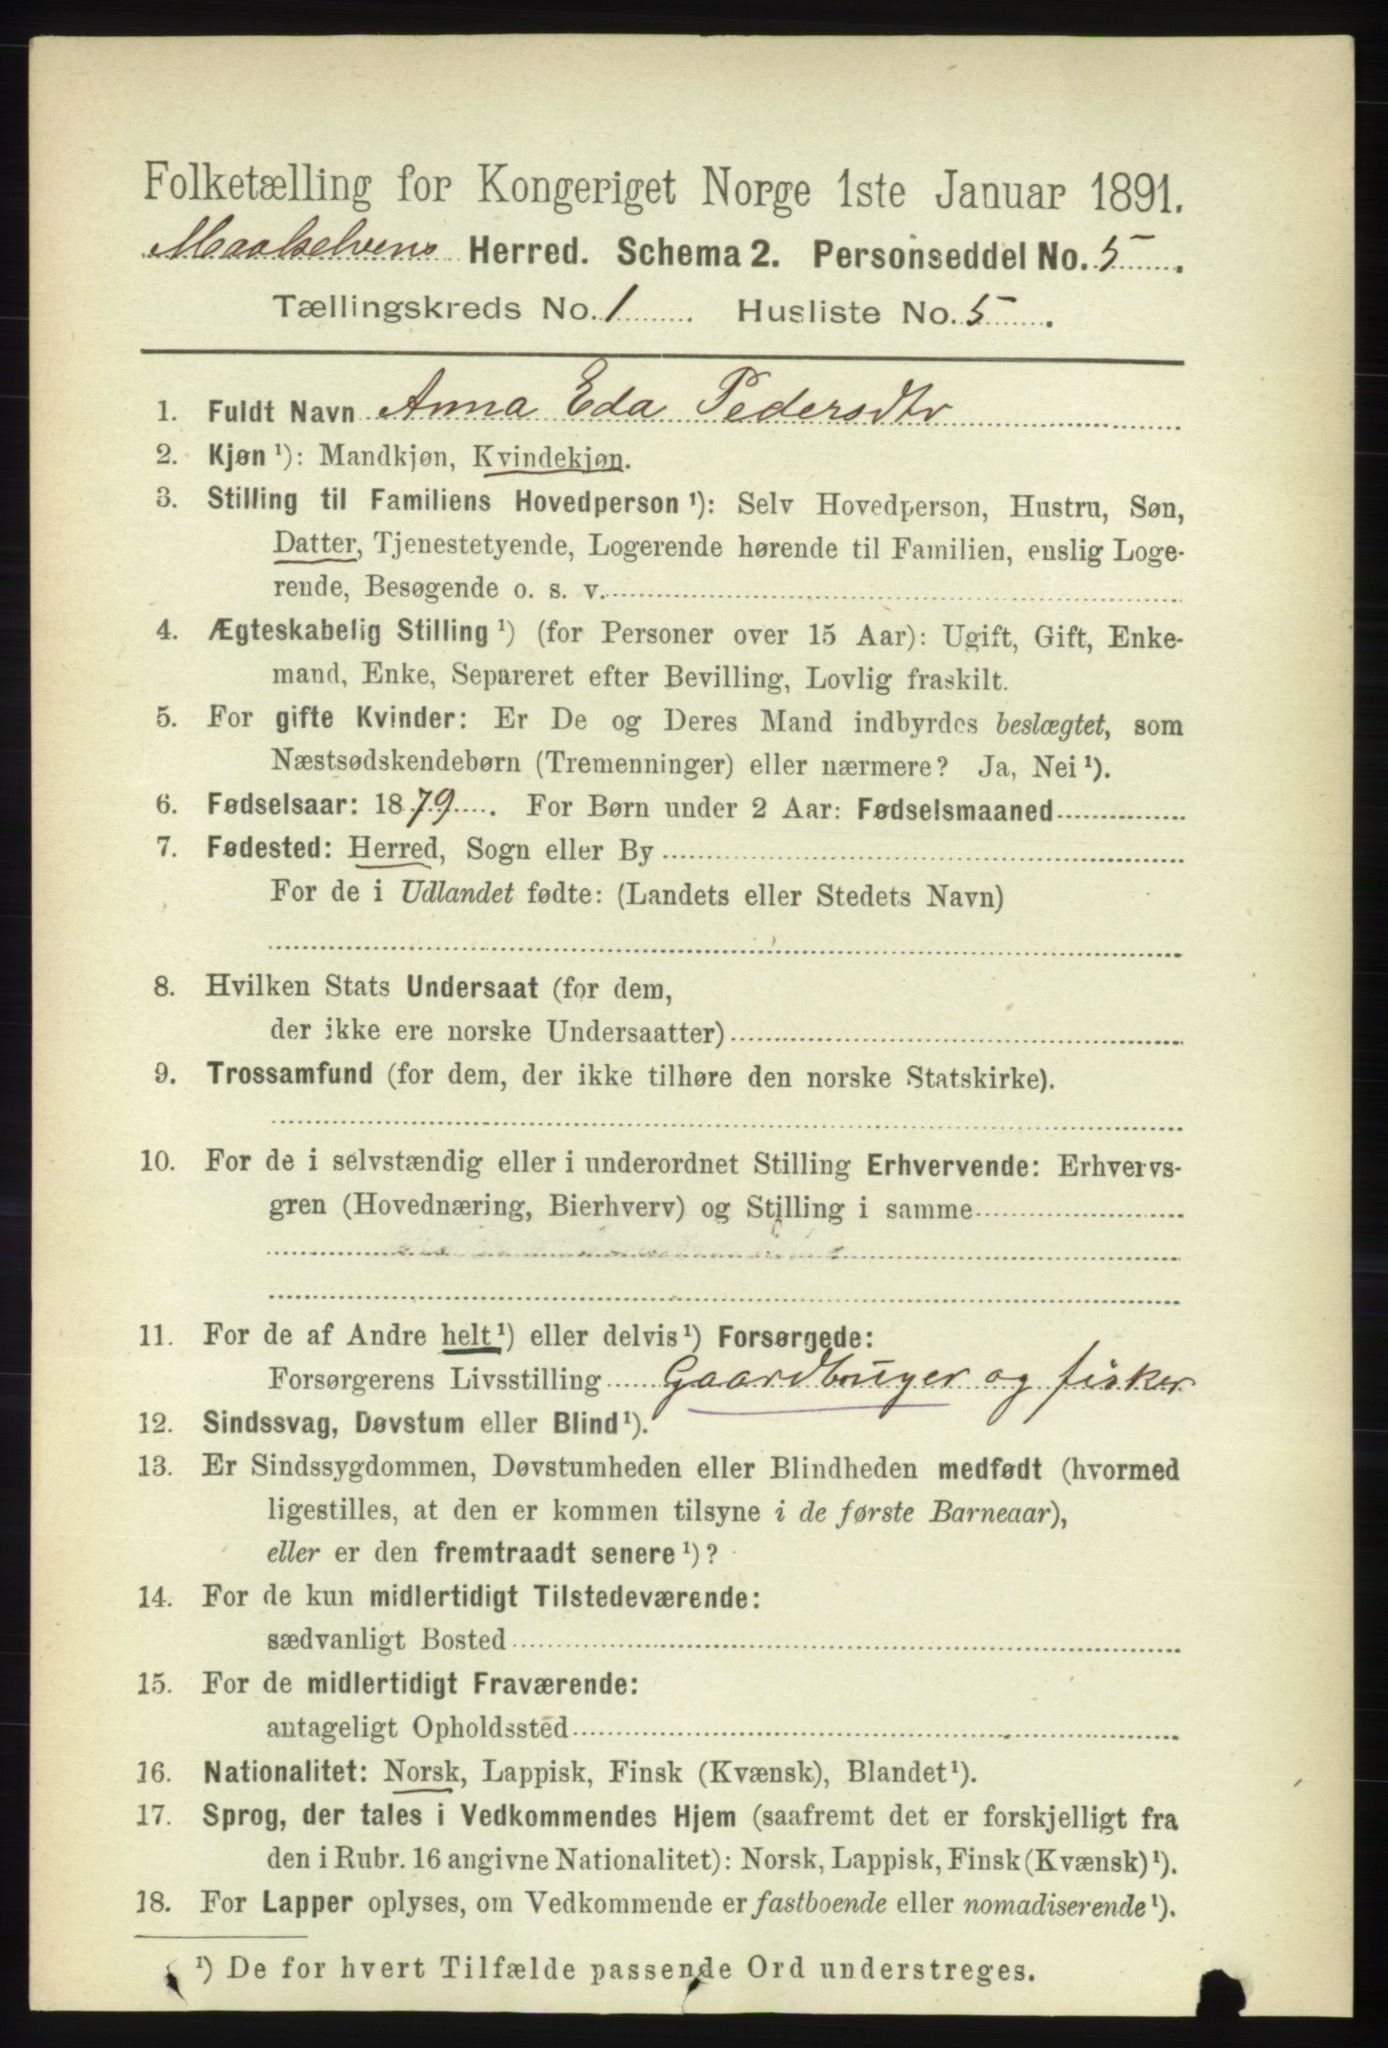 Folketælling for Kongeriget Norge 1ste Januar 1891.
Maalselvens Herred. Schema 2. Personseddel No. 5.
Tællingskreds No. 1. Husliste No. 5.
1. Fuldt Navn Anna Eda Pedersdtr
2. Kjøn ¹): Mandkjøn, Kvindekjøn.
3. Stilling til Familiens Hovedperson ¹): Selv Hovedperson, Hustru, Søn,
Datter, Tjenestetyende, Logerende hørende til Familien, enslig Loge-
rende, Besøgende o. s. v.
4. Ægteskabelig Stilling ¹) (for Personer over 15 Aar): Ugift, Gift, Enke-
mand, Enke, Separeret efter Bevilling, Lovlig fraskilt.
5. For gifte Kvinder: Er De og Deres Mand indbyrdes beslægtet, som
Næstsødskendebørn (Tremenninger) eller nærmere? Ja, Nei ¹).
6. Fødselsaar: 1879. For Børn under 2 Aar: Fødselsmaaned
7. Fødested: Herred, Sogn eller By
For de i Udlandet fødte: (Landets eller Stedets Navn)
8. Hvilken Stats Undersaat (for dem,
der ikke ere norske Undersaatter)
9. Trossamfund (for dem, der ikke tilhøre den norske Statskirke).
10. For de i selvstændig eller i underordnet Stilling Erhvervende: Erhvervs-
gren (Hovednæring, Bierhverv) og Stilling i samme
11. For de af Andre helt ¹) eller delvis ¹) Forsørgede:
Forsørgerens Livsstilling Gaardbruger og fisker
12. Sindssvag, Døvstum eller Blind ¹).
13. Er Sindssygdommen, Døvstumheden eller Blindheden medfødt (hvormed
ligestilles, at den er kommen tilsyne i de første Barneaar),
eller er den fremtraadt senere ¹)?
14. For de kun midlertidigt Tilstedeværende:
sædvanligt Bosted
15. For de midlertidigt Fraværende:
antageligt Opholdssted
16. Nationalitet: Norsk, Lappisk, Finsk (Kvænsk), Blandet ¹).
17. Sprog, der tales i Vedkommendes Hjem (saafremt det er forskjelligt fra
den i Rubr. 16 angivne Nationalitet): Norsk, Lappisk, Finsk (Kvænsk) ¹).
18. For Lapper oplyses, om Vedkommende er fastboende eller nomadiserende ¹).
¹) De for hvert Tilfælde passende Ord understreges.